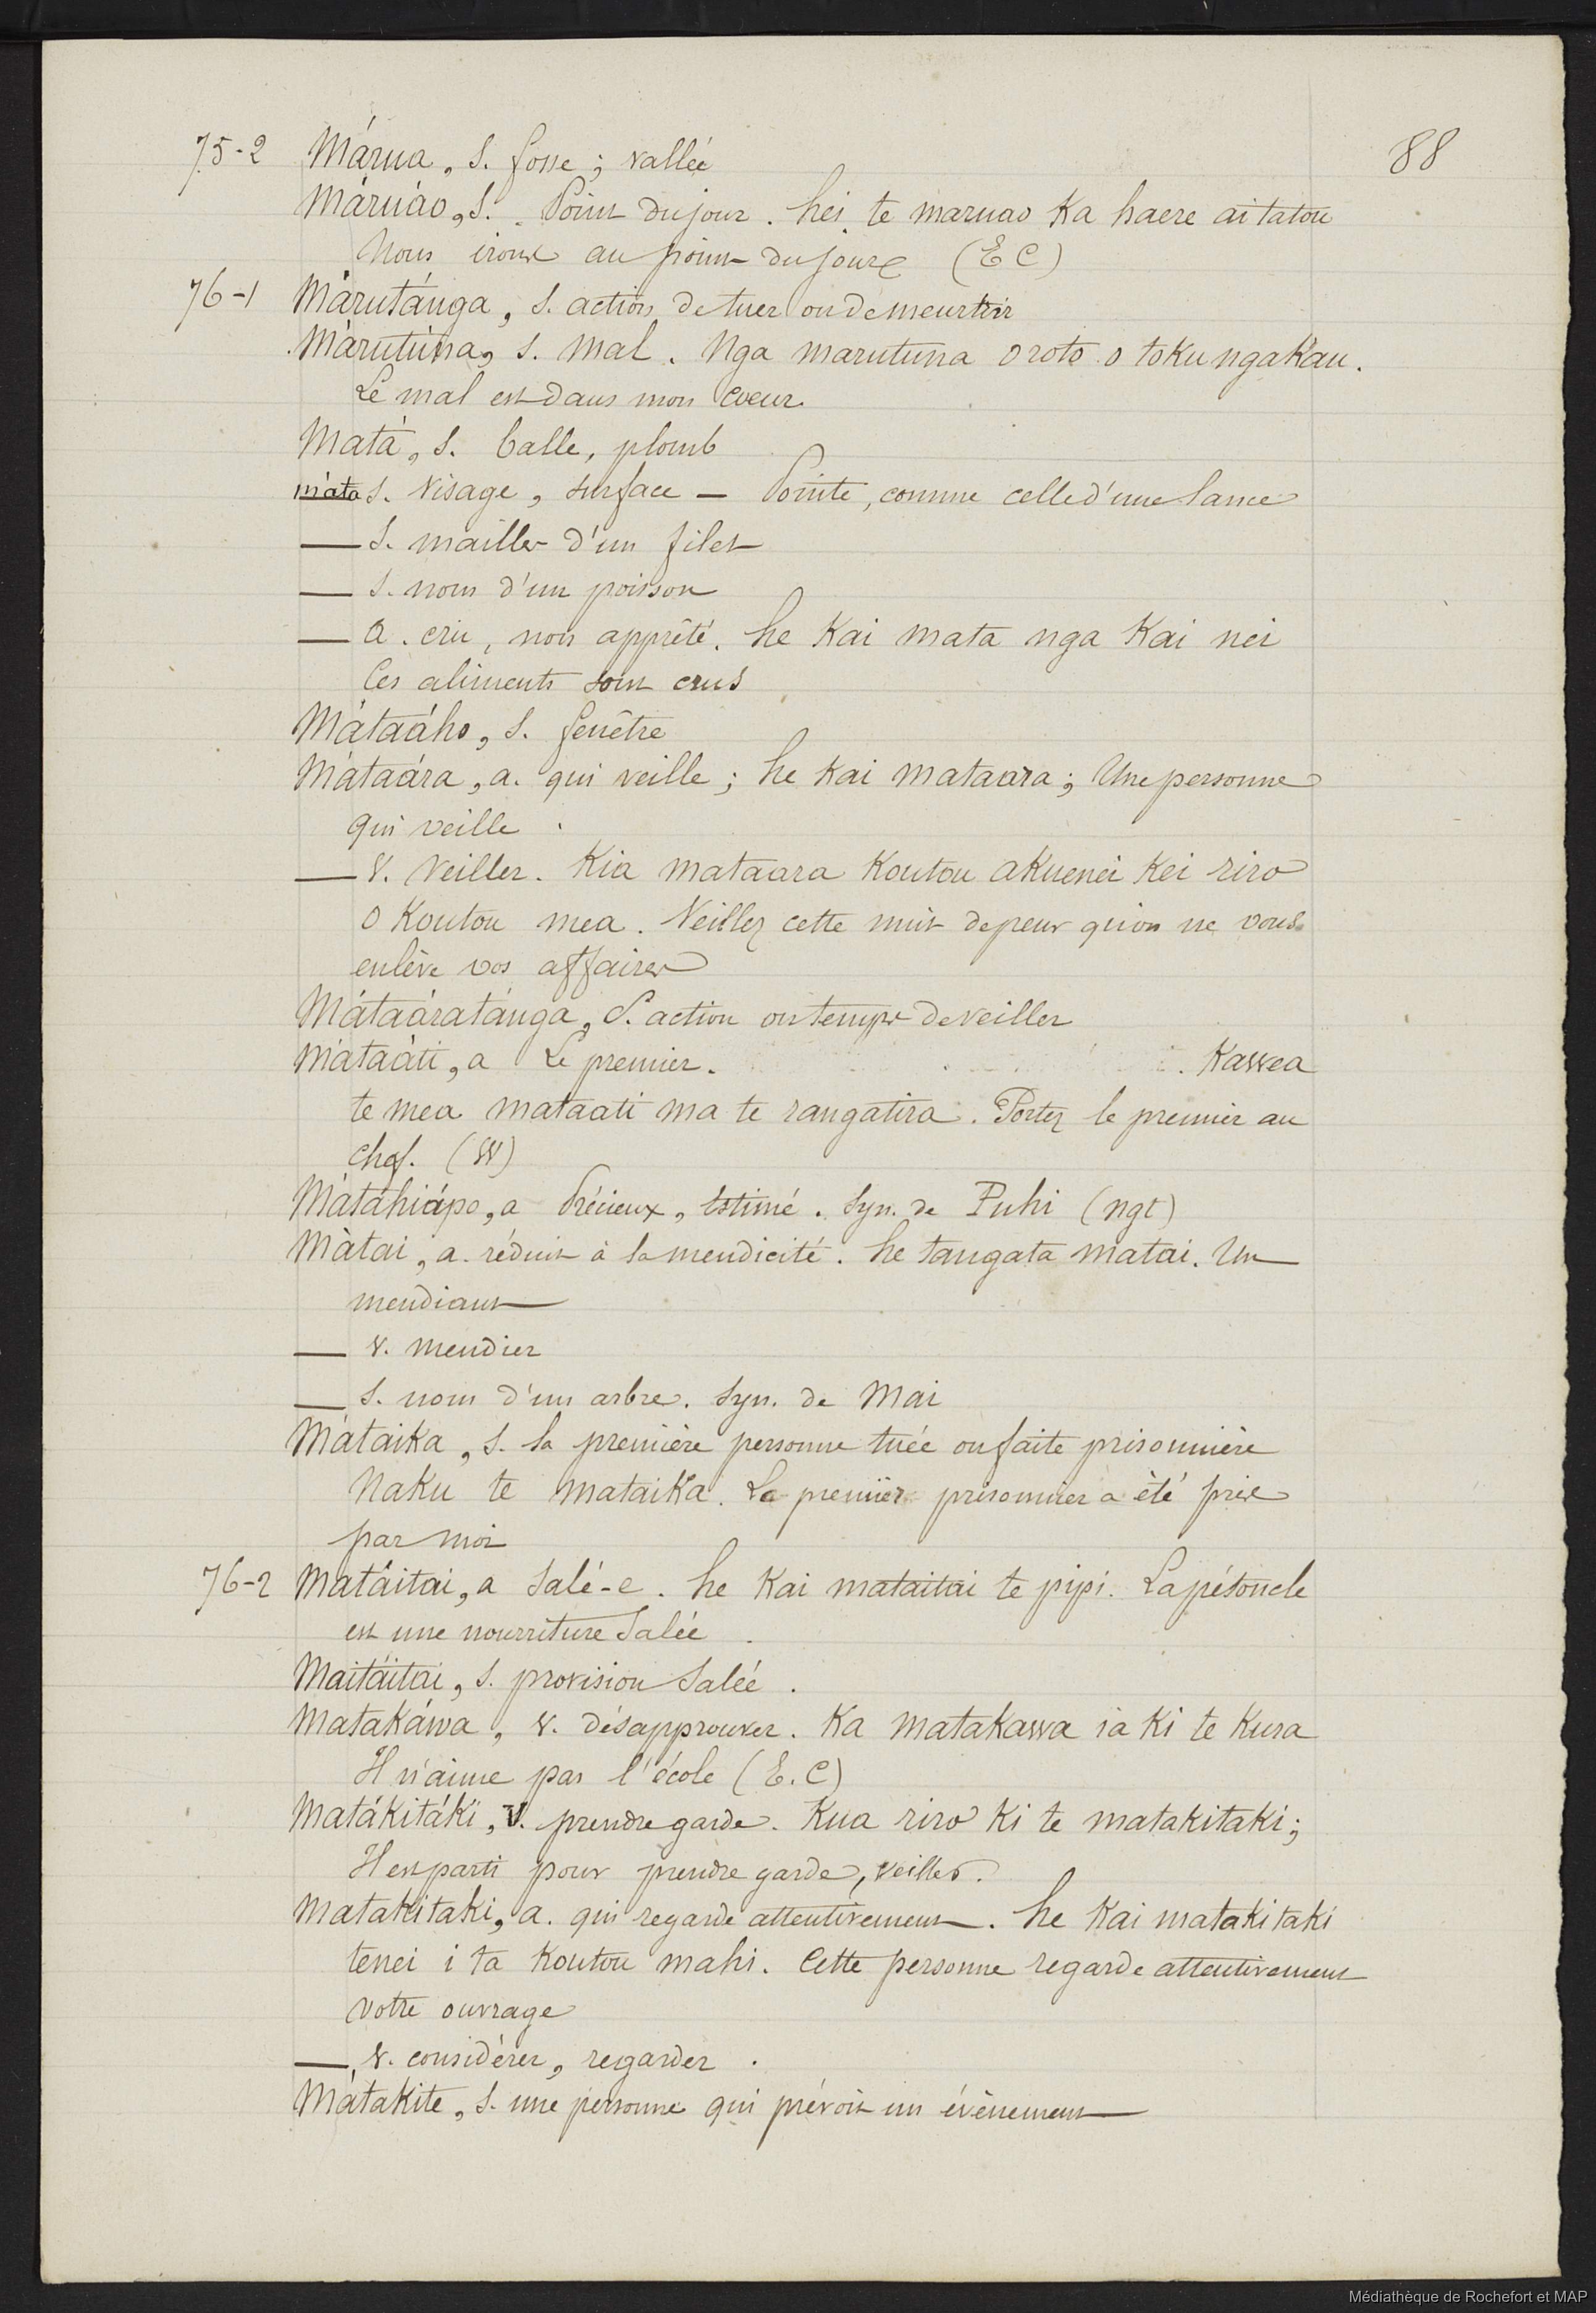 75-2 Márua, s. fosse; vallée 88
Máruáo, s. Point du jour. hei te maruao Ka haere ai tatou
Nous irons au point du jour (E C)
76-1 Márutánga, s. action de tuer ou de meurtrir
Márutúna, s. mal. Nga marutuna o roto o toku ngakau.
Le mal est dans mon coeur
Matá, s. balle, plomb
mata s. Visage, surface — Pointe, comme celle d'une lance
— s. mailles d'un filet
— s. nom d'un poisson
— a. cru, non apprêté. he Kai mata nga Kai nei
Ces aliments sont crus
Mátaáho, s. fenêtre
Mátaára, a. qui veille; he Kai mataara; Une personne
qui veille.
— v. Veiller. Kia mataara Koutou akuenei Kei riro
o Koutou mea. Veillez cette nuit de peur qu'on ne vous
enlève vos affaires
Mátaáratánga, S. action ou temps de veiller
Mátaáti, a Le premier. Kawea
te mea mataati ma te rangatira. Portez le premier au
chef. (W)
Mátáhiápo, a Précieux, Estimé. Syn. de Puhi (ngt)
Mátai, a. réduit à la mendicité. he tangata matai. Un
mendiant
— v. Mendier
— s. nom d'un arbre. Syn. de Mai
Mátaika, s. la première personne tuée ou faite prisonnière
Naku te mataika. Le premier prisonnier a été pris
par moi
76-2 Matáitai, a Salé-e. he Kai mataitai te pipi. La pétoncle
est une nourriture Salée.
Maitáitai, s. provision Salée.
Matakáwa, v. désapprouver. Ka matakawa ia Ki te Kura
Il n'aime pas l'école (E.C)
Matákitáki, v. prendre garde. Kua riro Ki te matakitaki;
Il est parti pour prendre garde, veiller.
Matakitaki, a. qui regarde attentivement. he Kai matakitaki
tenei i ta Koutou mahi. Cette personne regarde attentivement
votre ouvrage
— v. considérer, regarder.
Mátakite, s. une personne qui prévoit un évènement
Médiathèque de Rochefort et MAP